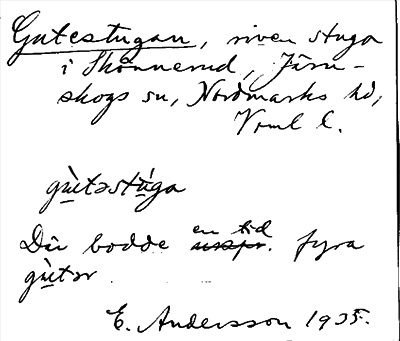 Gutestugan, riven stuga
i Skönnerud, Järn-
skogs sn, Nordmarks hd,
Vrml l.
gù̱təstù̱ga
Där bodde en tid fyra
gù̱tər
E. Andersson 1935.